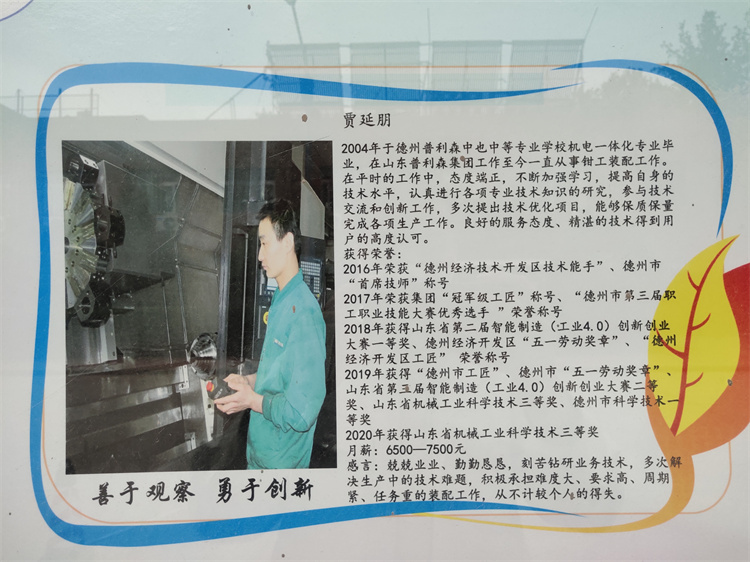 贾延朋
2004年于德州普利森中也中等专业学校机电一体化专业毕
业，在山东普利森集团工作至今一直从事钳工装配工作。
在平时的工作中，态度端正，不断加强学习，提高自身的
技术水平，认真进行各项专业技术知识的研究，参与技术
交流和创新工作，多次提出技术优化项目，能够保质保量
完成各项生产工作。良好的服务态度、精湛的技术得到用
户的高度认可。
获得荣誉：
2016年荣获“德州经济技术开发区技术能手”、德州市
“首席技师”称号
2017年荣获集团“冠军级工匠”称号、“德州市第三届职
工职业技能大赛优秀选手 ”荣誉称号
2018年获得山东省第二届智能制造（工业4.0）创新创业
大赛一等奖、德州经济开发区“五一劳动奖章”、“德州
经济开发区工匠” 荣誉称号
2019年获得“德州市工匠”、德州市“五一劳动奖章”、
山东省第三届智能制造（工业4.0）创新创业大赛二等
奖、山东省机械工业科学技术三等奖、德州市科学技术一
等奖
2020年获得山东省机械工业科学技术三等奖
月薪：6500—7500元
感言：兢兢业业、勤勤恳恳，刻苦钻研业务技术，多次解
决生产中的技术难题，积极承担难度大、要求高、周期
紧、任务重的装配工作，从不计较个人的得失。
善于观察 勇于创新